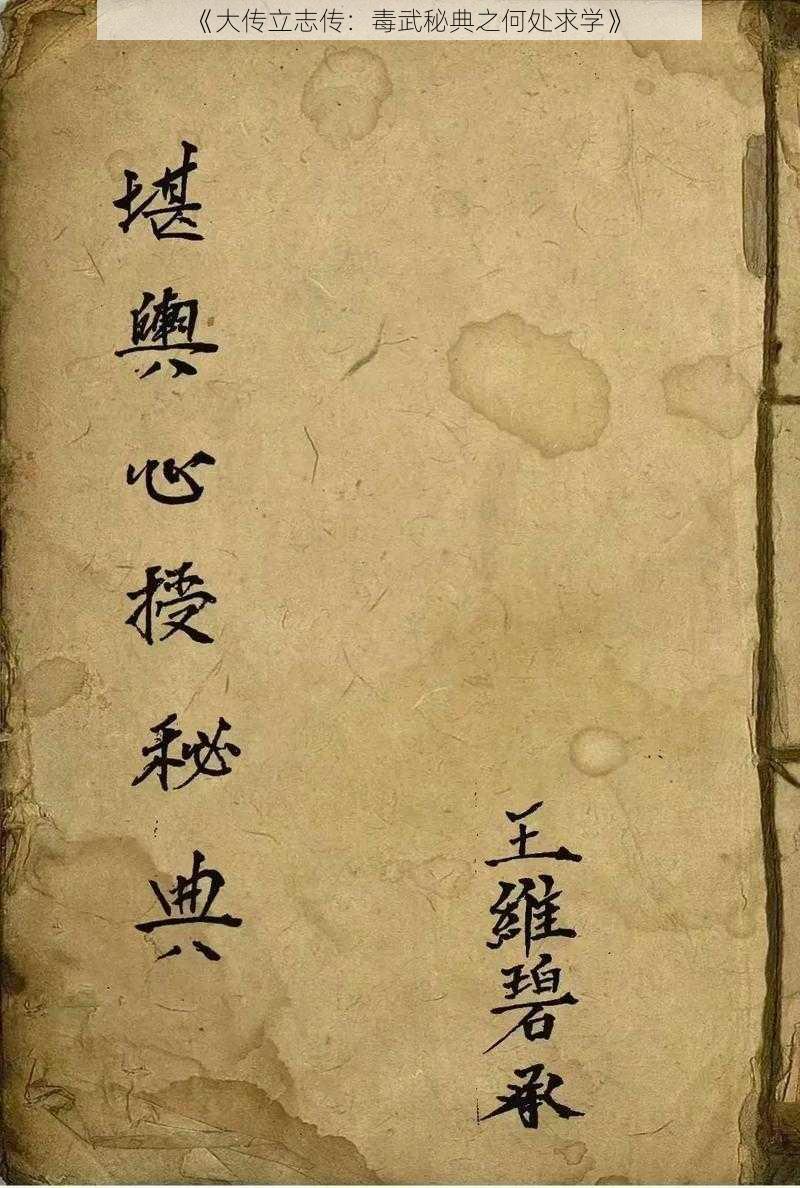 《大传立志传：毒武秘典之何处求学》
堪輿心授秘典
王維碧承